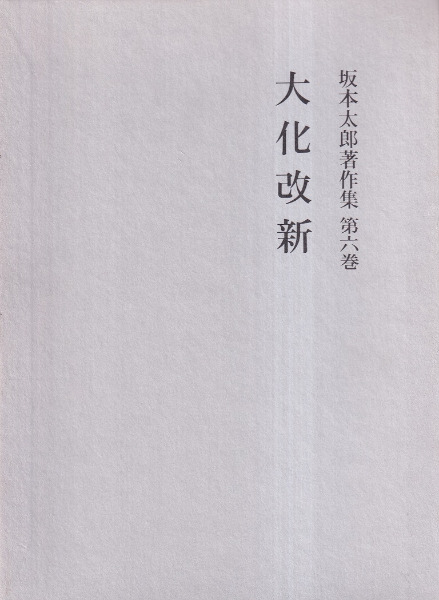 坂本太郎著作集 第六巻
大化改新